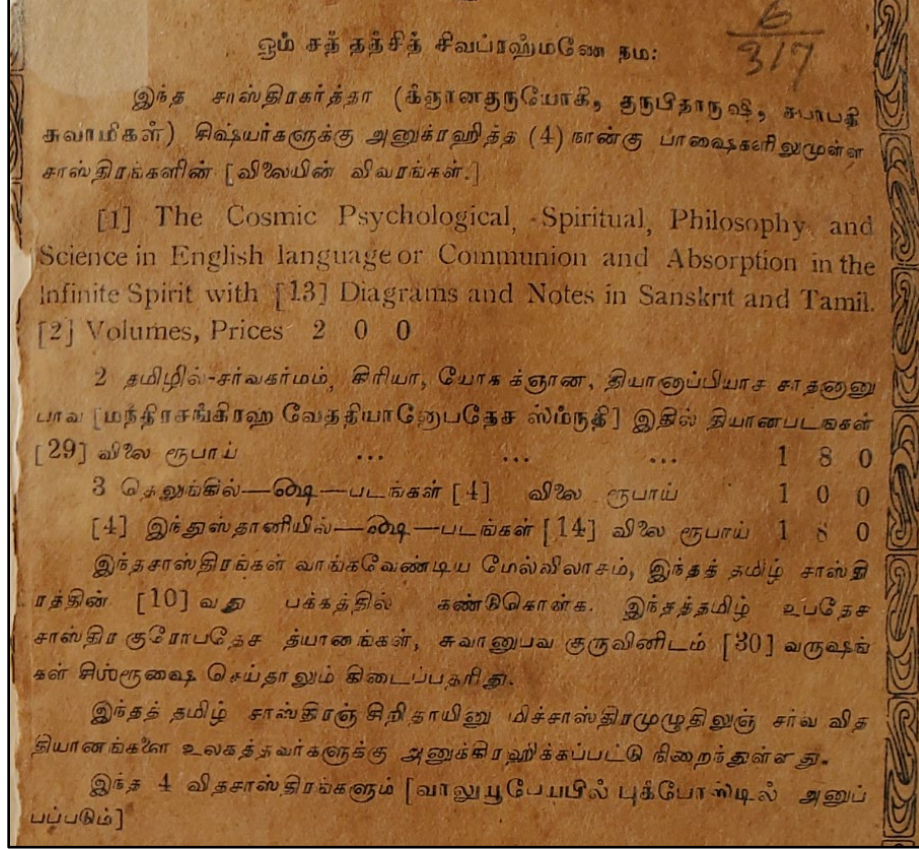 6
317
ஓம் சத் தத்சித் சிவப்ரஹ்மணே நம:
இந்த சாஸ்திரகர்த்தா (க்ஞானகுருயோகி, குருபிதாருஷி, சபாபதி
சுவாமிகள்) சிஷ்யர்களுக்கு அனுக்ரஹித்த (4) நான்கு பாஷைகளிலுமுள்ள
சாஸ்திரங்களின் [விலையின் விவரங்கள்.]
[1] The Cosmic Psychological, Spiritual, Philosophy and
Science in English language or Communion and Absorption in the
Infinite Spirit with [13] Diagrams and Notes in Sanskrit and Tamil.
[2] Volumes, Prices 2 0 0
2 தமிழில்-சர்வகர்மம், கிரியா, யோக க்ஞான, தியானாப்பியாச சாதனானு
பாவ [மந்திரசங்கிரஹ வேதத்தியானோபதேச ஸ்ம்ருதி] இதில் தியானபடங்கள்
[29] விலை ரூபாய் ... ... ... 1 8 0
3 தெலுங்கில்—௸—படங்கள் [4] விலை ரூபாய் 1 0 0
[4] இந்துஸ்தானியில்—௸—படங்கள் [14] விலை ரூபாய் 1 8 0
இந்தசாஸ்திரங்கள் வாங்கவேண்டிய மேல்விலாசம், இந்தத் தமிழ் சாஸ்தி
ரத்தின் [10] வது பக்கத்தில் கண்டுகொள்க. இந்தத்தமிழ் உபதேச
சாஸ்திர குரோபதேச த்யானங்கள், சுவானுபவ குருவினிடம் [30] வருஷங்
கள் சிஶ்ரூஷை செய்தாலும் கிடைப்பதரிது.
இந்தத் தமிழ் சாஸ்திரஞ் சிறிதாயினு மிச்சாஸ்திரமுழுதிலுஞ் சர்வ வித
தியானங்களை உலகத்தவர்களுக்கு அனுக்கிரஹிக்கப்பட்டு நிறைந்துள்ளது.
இந்த 4 விதசாஸ்திரங்களும் [வாலுயூபேயபில் புக்போஸ்டில் அனுப்
பப்படும்]